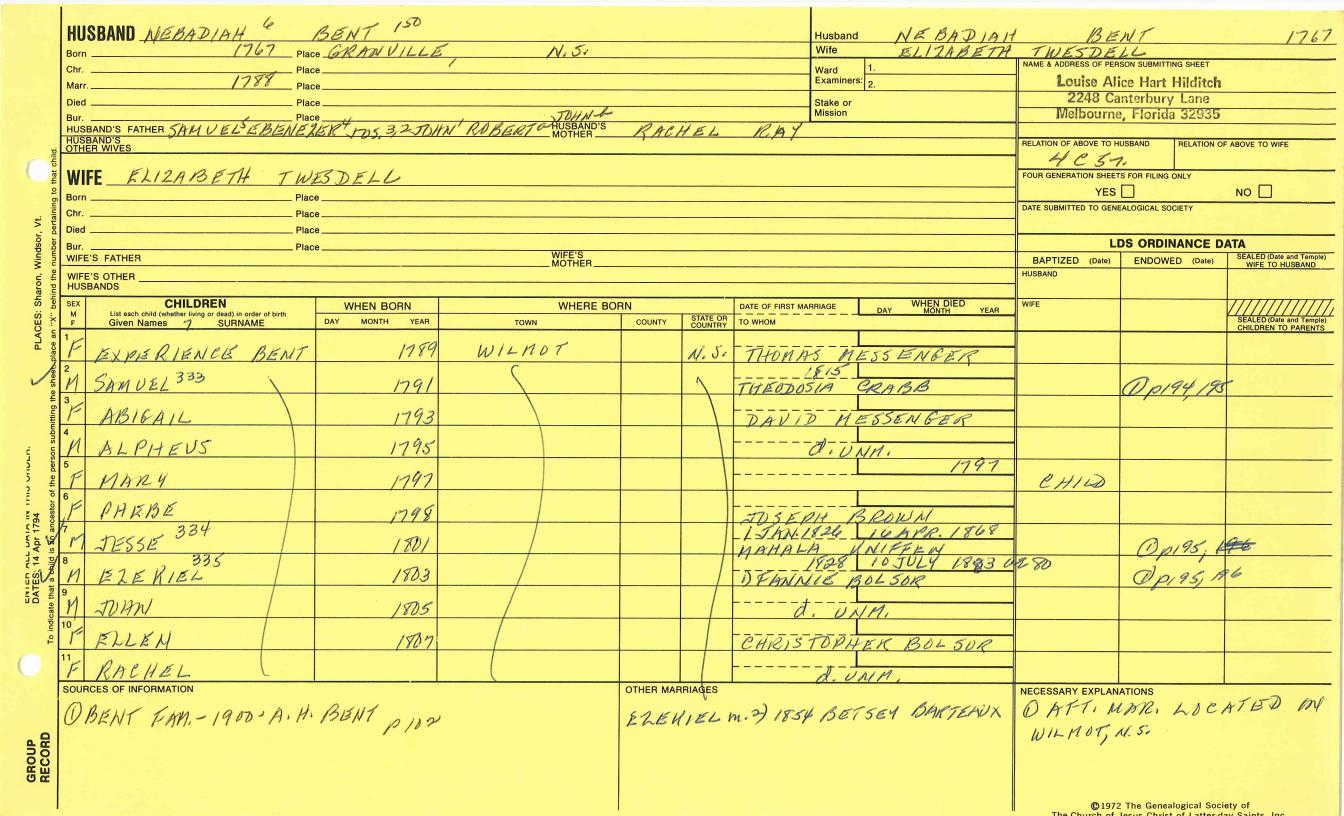 HUSBAND NEBADIAH 6 BENT 150
Born 1767 Place GRANVILLE, N.S.
Chr. Place
Marr. 1788 Place
Died Place
Bur. Place
HUSBAND'S FATHER SAMUEL5 EBENEZER4 JOS.3 2 JOHN1 ROBERTa JOHNb HUSBAND'S MOTHER RACHEL RAY
HUSBAND'S OTHER WIVES
WIFE ELIZABETH TWESDELL
Born Place
Chr. Place
Died Place
Bur. Place
WIFE'S FATHER WIFE'S MOTHER
WIFE'S OTHER HUSBANDS
Husband NEBADIAH BENT 1767
Wife ELIZABETH TWESDELL
Ward Examiners: 1.
2.
Stake or Mission
NAME & ADDRESS OF PERSON SUBMITTING SHEET
Louise Alice Hart Hilditch
2248 Canterbury Lane
Melbourne, Florida 32935
RELATION OF ABOVE TO HUSBAND RELATION OF ABOVE TO WIFE
4 C 5r.
FOUR GENERATION SHEETS FOR FILING ONLY
YES NO
DATE SUBMITTED TO GENEALOGICAL SOCIETY
LDS ORDINANCE DATA
BAPTIZED (Date) ENDOWED (Date) SEALED (Date and Temple) WIFE TO HUSBAND
HUSBAND
WIFE
SEALED (Date and Temple) CHILDREN TO PARENTS
SEX M F CHILDREN WHEN BORN WHERE BORN DATE OF FIRST MARRIAGE WHEN DIED
List each child (whether living or dead) in order of birth
Given Names 7 SURNAME DAY MONTH YEAR TOWN COUNTY STATE OR COUNTRY TO WHOM DAY MONTH YEAR
1 F EXPERIENCE BENT 1789 WILMOT N.S. THOMAS MESSENGER
2 M SAMUEL 333 1791 1815 THEODOSIA CRABB ① p194, 195
3 F ABIGAIL 1793 DAVID MESSENGER
4 M ALPHEUS 1795 d. UNM.
5 F MARY 1797 1797 CHILD
6 F PHEBE 1798 JOSEPH BROWN
7 M JESSE 334 1801 1 JAN. 1826 16 APR. 1868 MAHALA KNIFFEN ① p195,
8 M EZEKIEL 335 1803 1828 10 JULY 1883 or 80 FANNIE BOLSOR ① p195, 196
9 M JOHN 1805 d. UNM.
10 F ELLEN 1807 CHRISTOPHER BOLSOR
11 F RACHEL d. UNM.
SOURCES OF INFORMATION
① BENT FAM. - 1900 - A. H. BENT p 102
OTHER MARRIAGES
EZEKIEL m. 2) 1854 BETSEY BARTEAUX
NECESSARY EXPLANATIONS
① AFT. MAR. LOCATED IN
WILMOT, N.S.
©1972 The Genealogical Society of
The Church of Jesus Christ of Latter-day Saints, Inc.
PLACES: Sharon, Windsor, Vt.
DATES: 14 Apr 1794
To indicate that a child is an ancestor of the person submitting the sheet, place an "X" behind the number pertaining to that child.
GROUP
RECORD